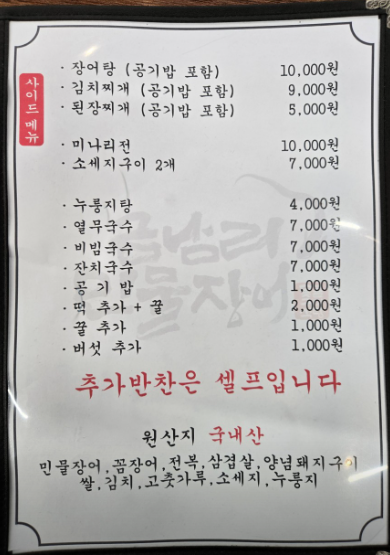 사이드메뉴
· 장어탕 (공기밥 포함) 10,000원
· 김치찌개 (공기밥 포함) 9,000원
· 된장찌개 (공기밥 포함) 5,000원
· 미나리전 10,000원
· 소세지구이 2개 7,000원
· 누룽지탕 4,000원
· 열무국수 7,000원
· 비빔국수 7,000원
· 잔치국수 7,000원
· 공 기 밥 1,000원
· 떡 추가 + 꿀 2,000원
· 꿀 추가 1,000원
· 버섯 추가 1,000원
추가반찬은 셀프입니다
원산지 국내산
민물장어,꼼장어,전복,삼겹살,양념돼지구이
쌀,김치,고춧가루,소세지,누룽지